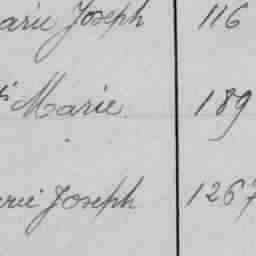 arie Joseph 116
Marie 189
rie Joseph 1267